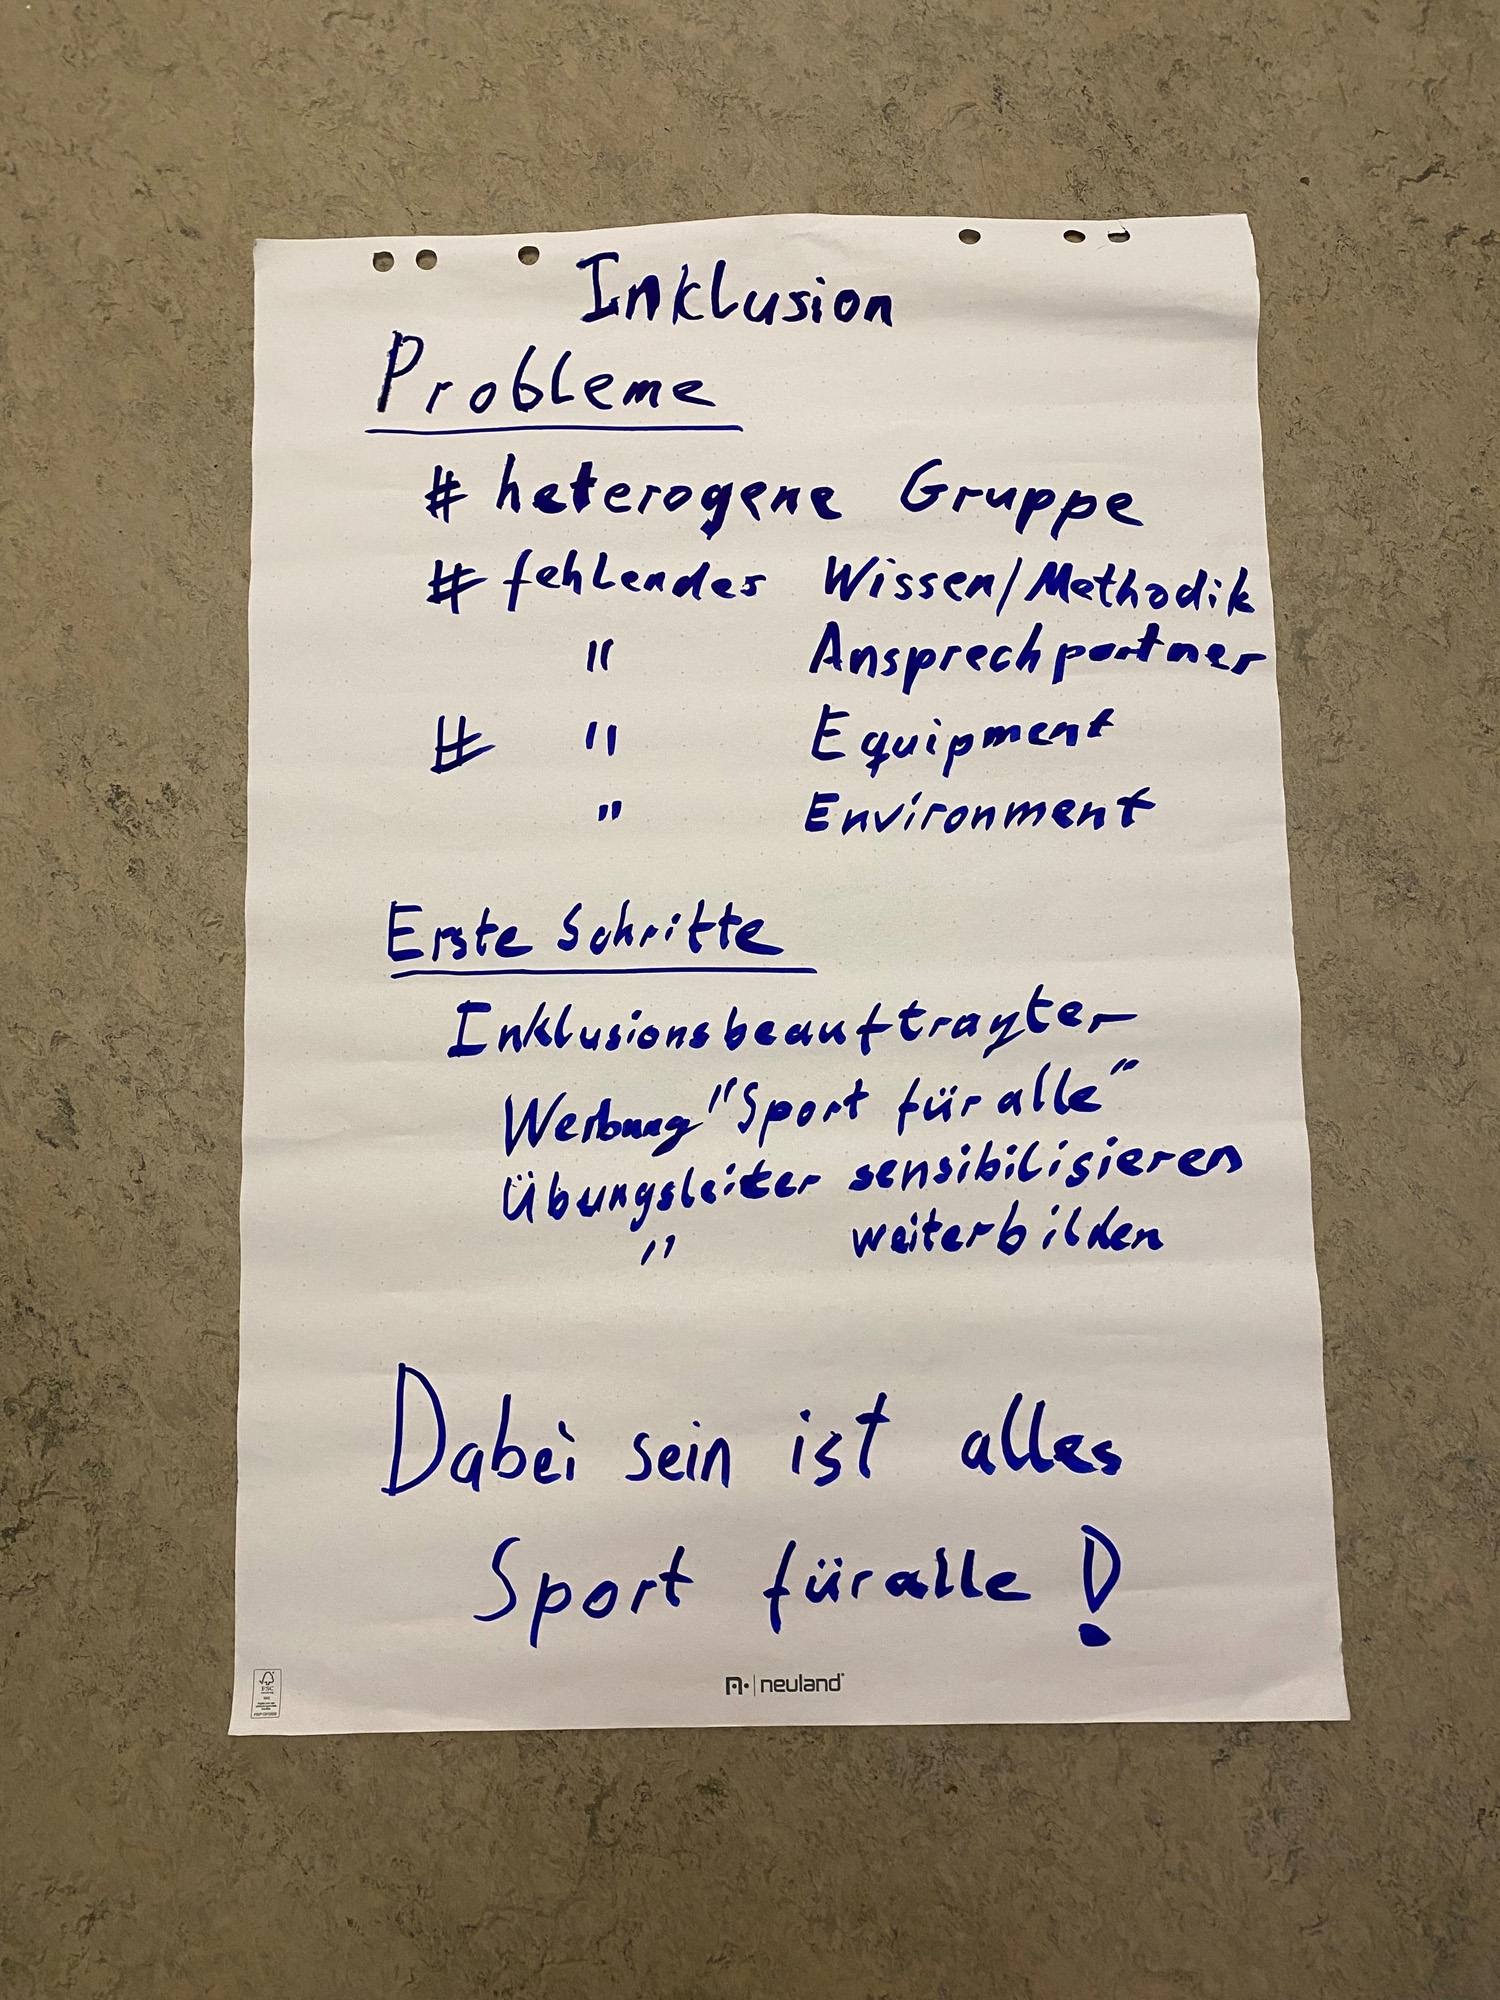 Inklusion
Probleme
# heterogene Gruppe
# fehlendes Wissen/Methodik
" Ansprechpartner
# " Equipment
" Environment
Erste Schritte
Inklusionsbeauftragter
Werbung "Sport für alle"
Übungsleiter sensibilisieren
" weiterbilden
Dabei sein ist alles
Sport für alle !
neuland
FSC